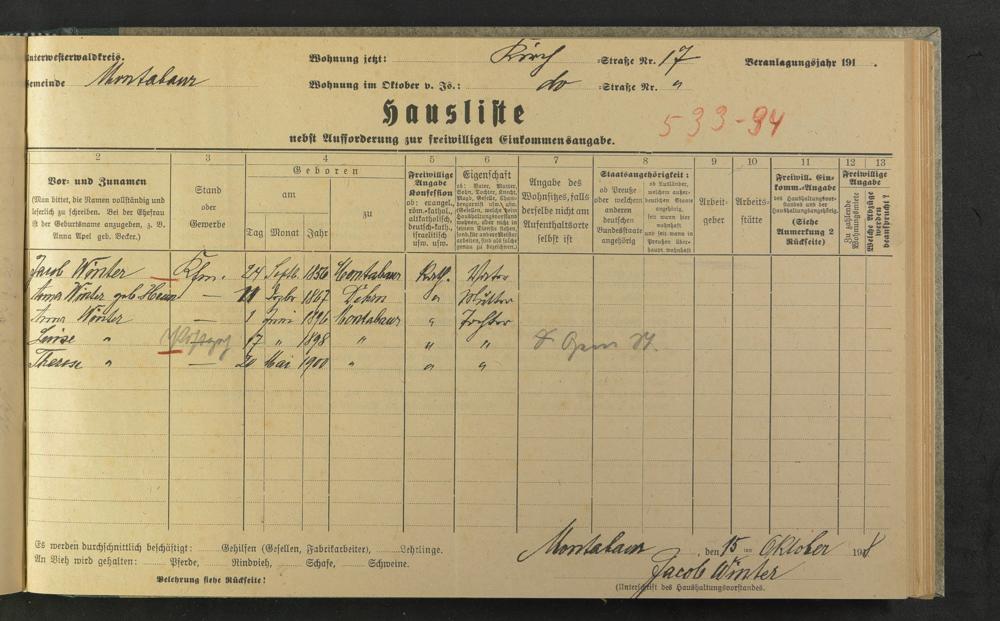 Unterwesterwaldkreis. Wohnung jetzt: Kirch =Straße Nr. 17 Veranlagungsjahr 191
Gemeinde Montabaur Wohnung im Oktober v. Js.: do =Straße Nr. "
Hausliste
533-94
nebst Aufforderung zur freiwilligen Einkommensangabe.
2 3 4 5 6 7 8 9 10 11 12 13
Vor- und Zunamen
(Man bittet, die Namen vollständig und
leserlich zu schreiben. Bei der Ehefrau
ist der Geburtsname anzugeben, z. B.
Anna Apel geb. Becker.)
Stand
oder
Gewerbe
Geboren
am zu
Tag Monat Jahr
Freiwillige
Angabe
Konfession
ob: evangel.,
röm.-kathol.,
altkatholisch,
deutsch-kath.,
israelitisch
usw. usw.
Eigenschaft
ob: Vater, Mutter,
Sohn, Tochter, Knecht,
Angabe des
Wohnsitzes, falls
derselbe nicht am
Aufenthaltsorte
selbst ist
Staatsangehörigkeit:
ob Preuße
oder welchem
anderen
deutschen
Bundesstaate
angehörig
ob Ausländer,
welchem außer-
deutschen Staate
angehörig,
seit wann hier
wohnhaft
und seit wann in
Preußen über-
haupt wohnhaft
Arbeit-
geber
Arbeits-
stätte
Freiwill. Ein-
komm.-Angabe
des Haushaltungsvor-
standes und der
Haushaltungsangehörig.
(Siehe
Anmerkung 2
Rückseite)
Freiwillige
Angabe
Zu zahlende
Wohnungsmiete
Welche Abzüge
werden
beansprucht?
Jacob Winter Kfm. 24 Septb. 1856 Montabaur Kath. Vater
Anna Winter geb. — 11 1867 Dehrn " Mutter
Anna Winter — 1 Juni 1896 Montabaur " Tochter
Luise " 17 " 1898 " " "
Therese " — 20 Mai 1900 " " "
Es werden durchschnittlich beschäftigt: Gehilfen (Gesellen, Fabrikarbeiter), Lehrlinge.
An Vieh wird gehalten: Pferde, Rindvieh, Schafe, Schweine.
Belehrung siehe Rückseite!
Montabaur, den 15 ten Oktober 1918
Jacob Winter
(Unterschrift des Haushaltungsvorstandes.